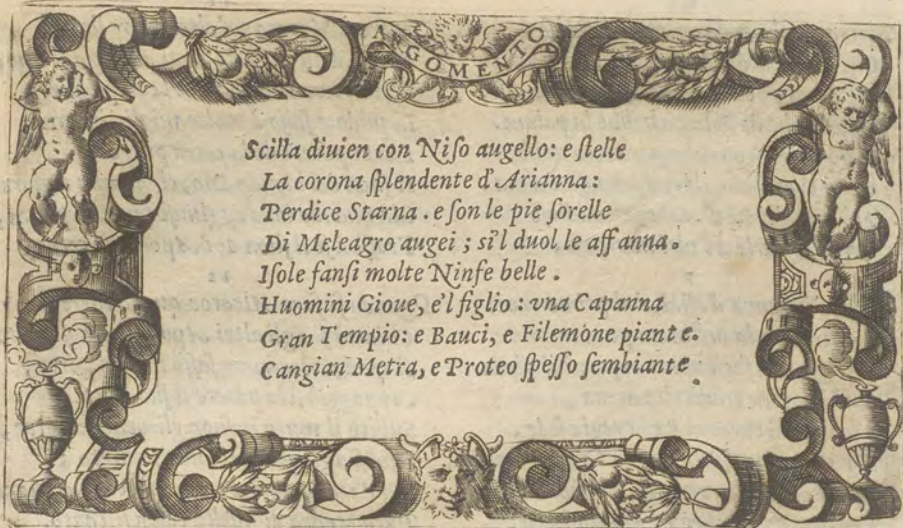 ARGOMENTO
Scilla diuien con Niſo augello: e ſtelle
La corona ſplendente d'Arianna:
Perdice Starna. e ſon le pie ſorelle
Di Meleagro augei; sì'l duol le affanna.
Iſole fanſi molte Ninfe belle.
Huomini Gioue, e'l figlio: vna Capanna
Gran Tempio: e Bauci, e Filemone piante.
Cangian Metra, e Proteo ſpeſſo ſembiante